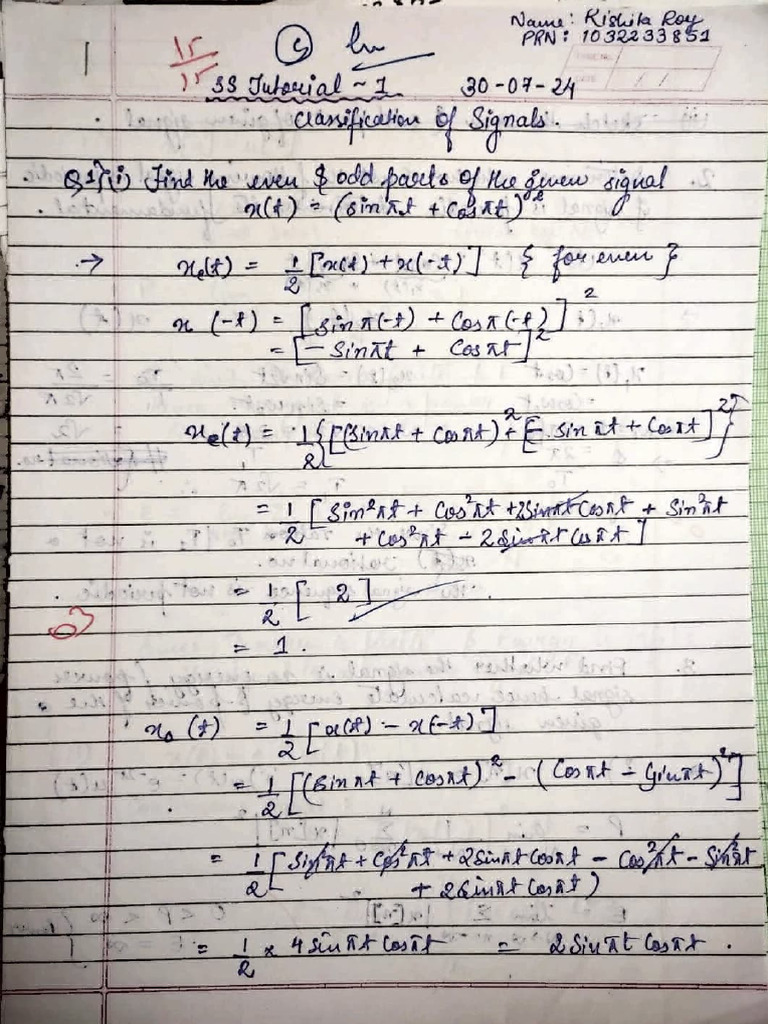 Name: Rishita Roy
PRN: 1032233851
15/15
SS Tutorial - 1 30-07-24
Classification of Signals.
Q1) (i) Find the even & odd parts of the given signal
x(t) = (sin πt + cos πt)²
→ xe(t) = 1/2 [x(t) + x(-t)] { for even }
x (-t) = [sin π(-t) + cos π(-t)]²
= [- sin πt + cos πt]²
xe(t) = 1/2 {[(sin πt + cos πt)² + [- sin πt + cos πt]²}
= 1/2 [sin² πt + cos² πt + 2 sin πt cos πt + sin² πt
+ cos² πt - 2 sin πt cos πt]
= 1/2 [ 2 ]
03
= 1.
xo (t) = 1/2 [x(t) - x(-t)]
= 1/2 [(sin πt + cos πt)² - (cos πt - sin πt)²]
= 1/2 [sin² πt + cos² πt + 2 sin πt cos πt - cos² πt - sin² πt
+ 2 sin πt cos πt)
= 1/2 × 4 sin πt cos πt = 2 sin πt cos πt .